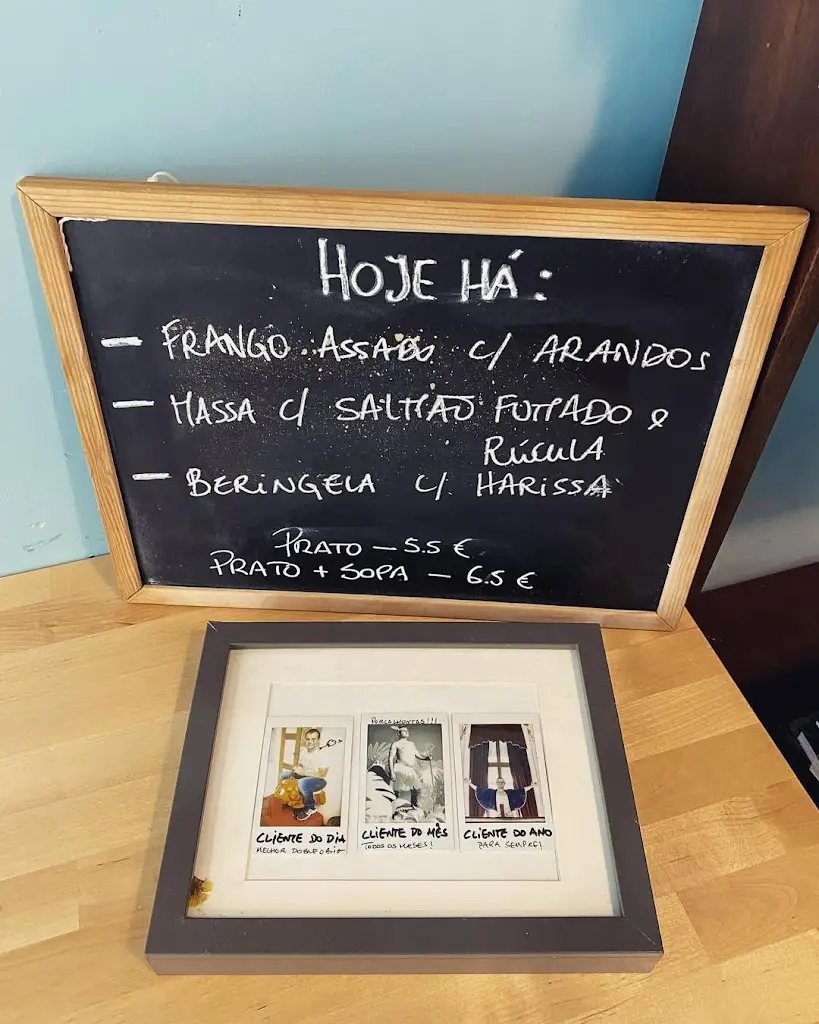 HOJE HÁ:
— FRANGO ASSADO C/ ARANDOS
— MASSA C/ SALMÃO FUMADO &
RÚCULA
— BERINGELA C/ HARISSA
PRATO — 5.5 €
PRATO + SOPA — 6.5 €
CLIENTE DO DIA
MELHOR DO QUE O BIO
CLIENTE DO MÊS
TODOS OS MESES!
CLIENTE DO ANO
PARA SEMPRE!